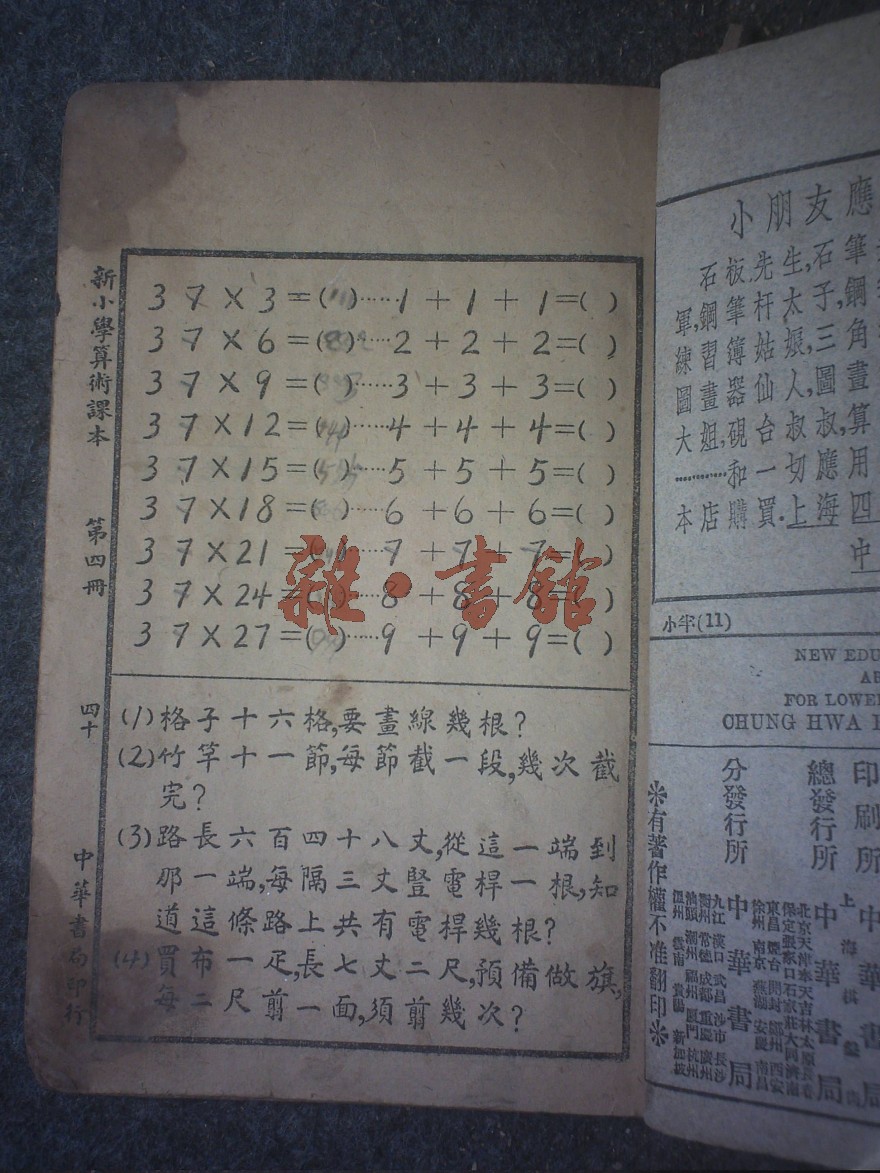 新小學算術課本 第四冊 四十 中華書局印行
37×3=( )……1+1+1=( )
37×6=( )……2+2+2=( )
37×9=( )……3+3+3=( )
37×12=( )……4+4+4=( )
37×15=( )……5+5+5=( )
37×18=( )……6+6+6=( )
37×21=( )……7+7+7=( )
37×24=( )……8+8+8=( )
37×27=( )……9+9+9=( )
(1)格子十六格,要畫線幾根?
(2)竹竿十一節,每節截一段,幾次截
完?
(3)路長六百四十八丈,從這一端到
那一端,每隔三丈豎電桿一根,知
道這條路上共有電桿幾根?
(4)買布一疋,長七丈二尺,預備做旗,
每二尺剪一面,須剪幾次?
雜·書館
小朋友應
石板先生,石筆
軍,鋼筆杆太子,鋼
練習簿姑娘三角
圖畫器仙人,圖畫
大姐,硯台叔叔,算
……和一切應用
本店購買.上海四
中
小牢(11)
NEW EDU
AB
FOR LOWE
CHUNG HWA
印刷所 中華書局
上海棋盤街
總發行所 中華書局
分發行所 中華書局
北京天津奉天吉林太原長春
保定張家口石家莊大同濟南
東昌煙台開封鄭州西安
徐州南京蕪湖安慶南昌
九江漢口武昌沙市長沙
衡州常德成都重慶廣州
汕頭潮州福州廈門杭州
溫州雲南貴陽新加坡
※有著作權不准翻印※